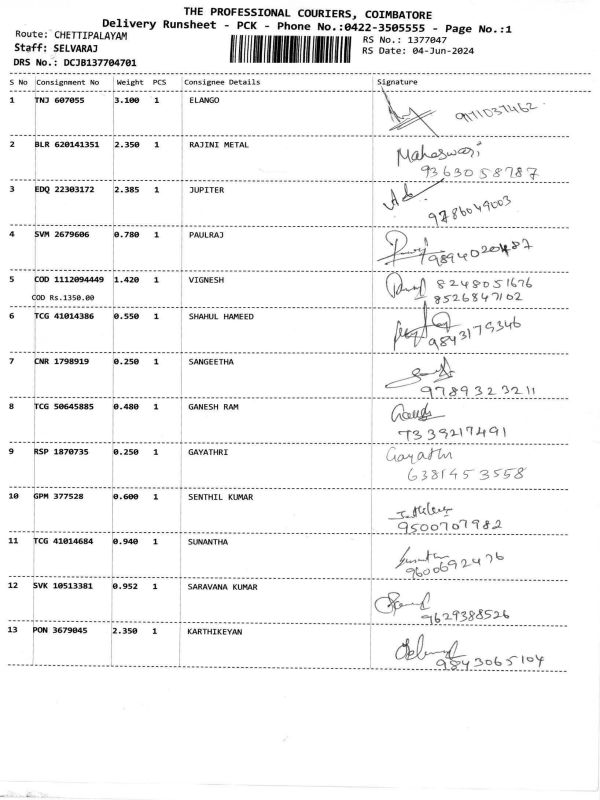 THE PROFESSIONAL COURIERS, COIMBATORE
Delivery Runsheet - PCK - Phone No.:0422-3505555 - Page No.:1
Route: CHETTIPALAYAM
RS No.: 1377047
Staff: SELVARAJ
RS Date: 04-Jun-2024
DRS No.: DCJB137704701
S No Consignment No Weight PCS Consignee Details Signature
1 TNJ 607055 3.100 1 ELANGO
9171037462
2 BLR 620141351 2.350 1 RAJINI METAL Maheswari
9363058787
3 EDQ 22303172 2.385 1 JUPITER
9786049003
4 SVM 2679606 0.780 1 PAULRAJ
9894020487
5 COD 1112094449 1.420 1 VIGNESH 8248051676
COD Rs.1350.00 8526847102
6 TCG 41014386 0.550 1 SHAHUL HAMEED
9843179346
7 CNR 1798919 0.250 1 SANGEETHA
9789323211
8 TCG 50645885 0.480 1 GANESH RAM
7339217491
9 RSP 1870735 0.250 1 GAYATHRI Gayathri
6381453558
10 GPM 377528 0.600 1 SENTHIL KUMAR
9500707982
11 TCG 41014684 0.940 1 SUNANTHA
9600692476
12 SVK 10513381 0.952 1 SARAVANA KUMAR
9629388526
13 PON 3679045 2.350 1 KARTHIKEYAN
9843065104